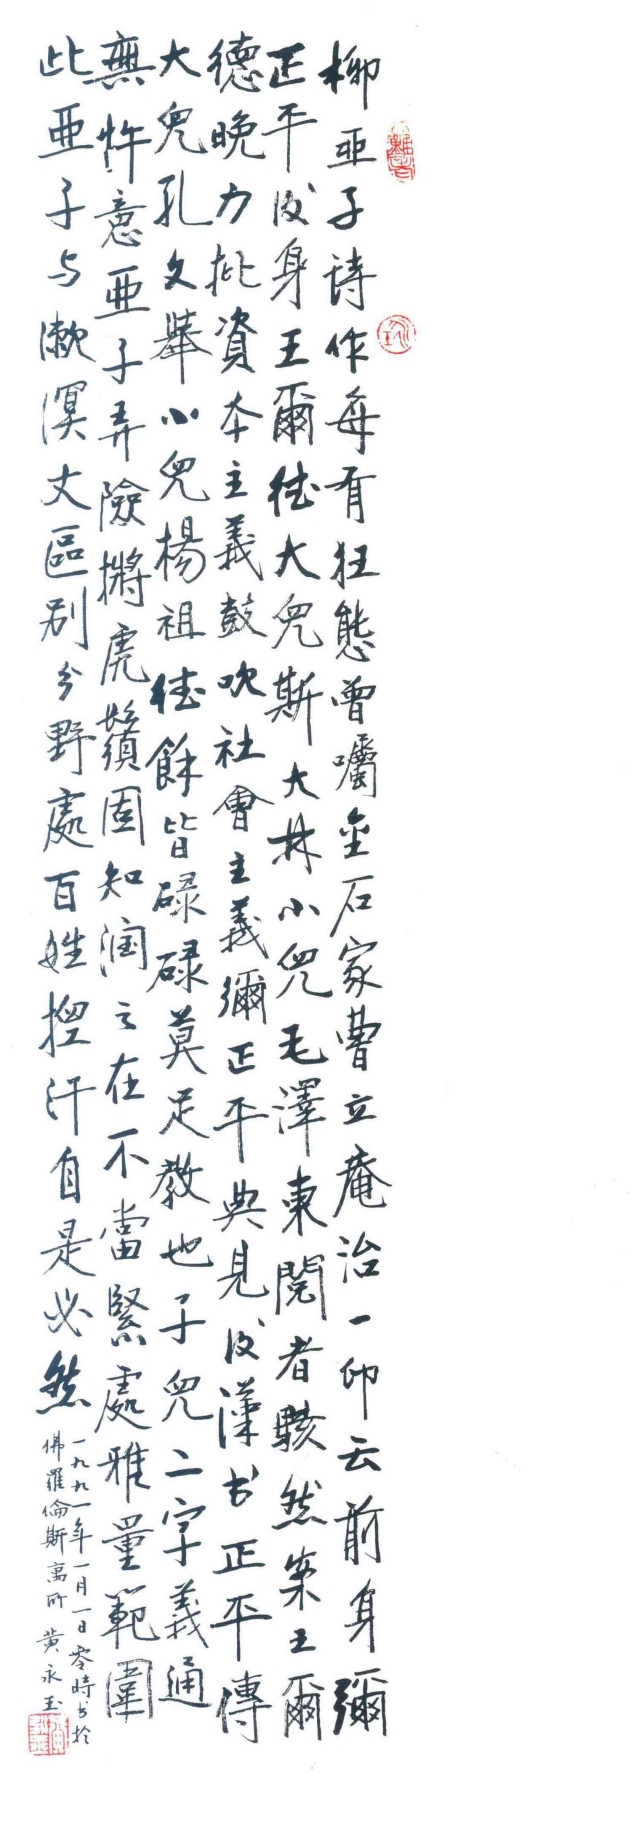 柳亞子诗作每有狂態曾囑金石家曹立庵治一印云前身彌
正平後身王爾德大兒斯大林小兒毛澤東閱者駭然案王爾
德晚力批資本主義鼓吹社會主義彌正平典見後漢书正平傳
大兒孔文舉小兒楊祖德餘皆碌碌莫足教也子兒二字義通
無忤意亞子弄險捋虎鬚固知润之在不當緊處雅量範圍
此亞子与漱溟丈區别分野處百姓揑汗自是必然
一九九一年一月一日零時书於
佛羅倫斯寓所 黄永玉